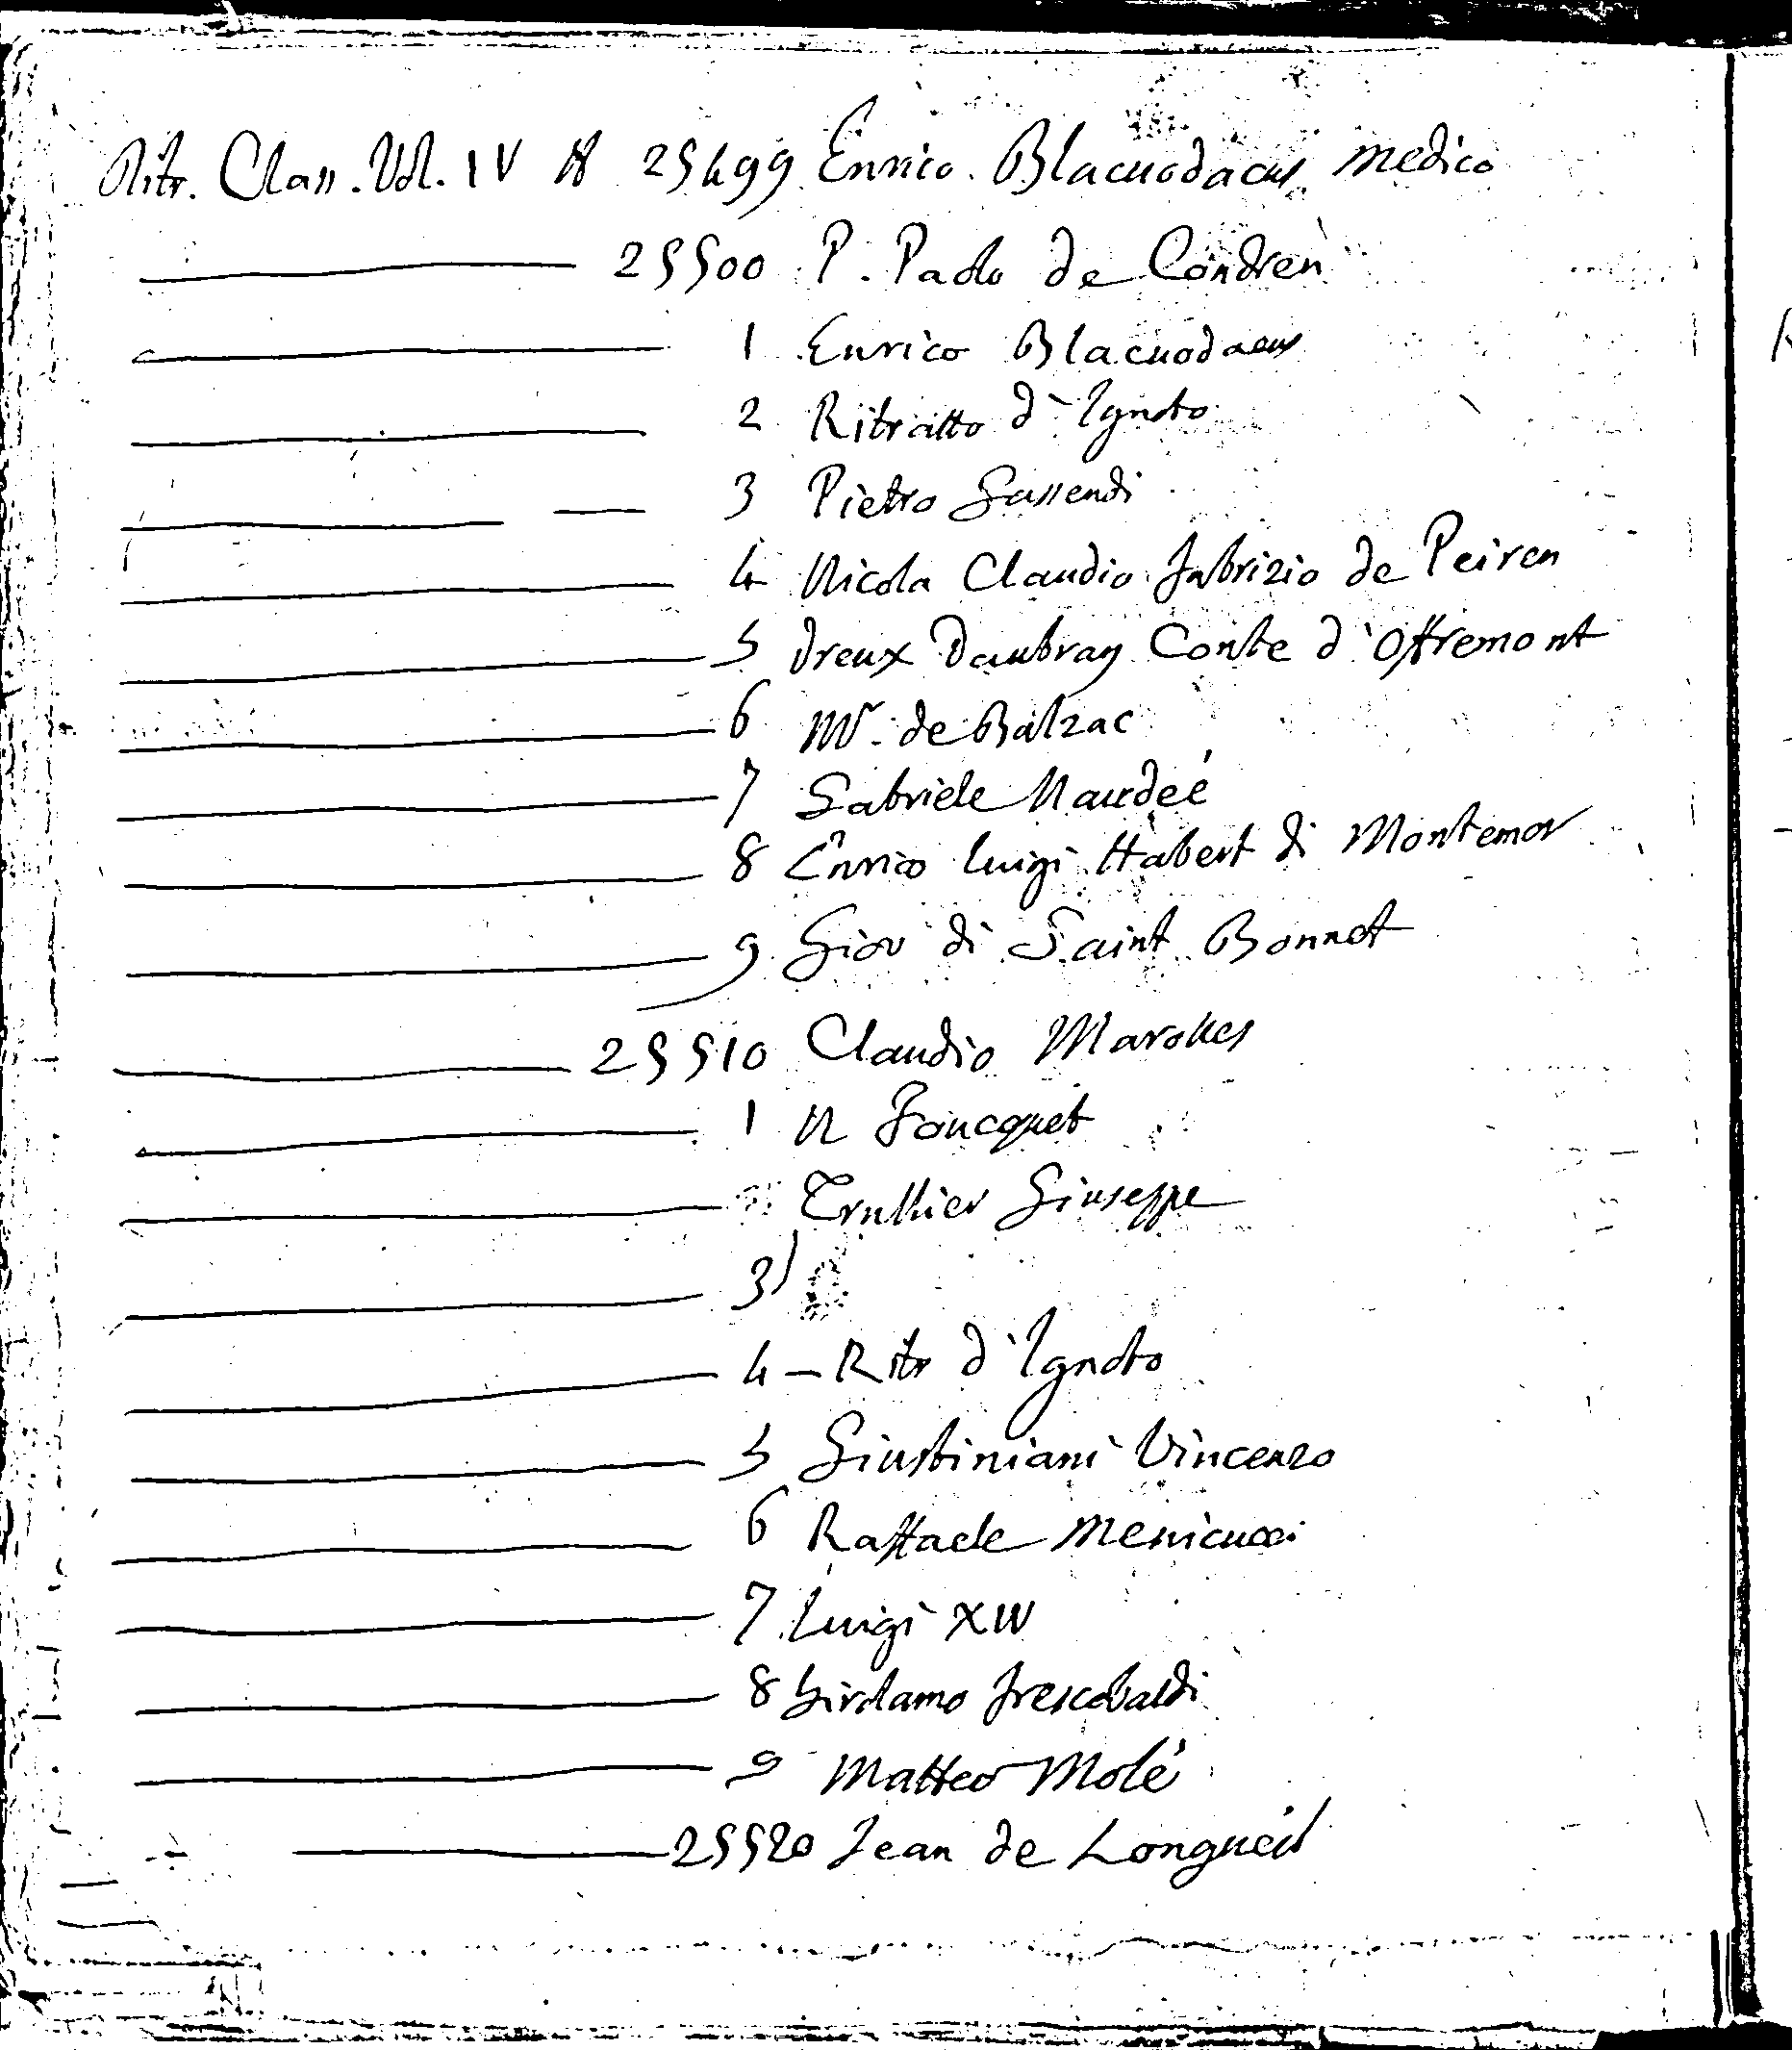 Ritr. Class. Vol. IV N 25499 Enrico Blacuodacus medico
25500 P. Paolo de Condren
1 Enrico Blacuodaeus
2 Ritratto d'Ignoto
3 Pietro Gassendi
4 Nicola Claudio Fabrizio de Peiren
5 Dreux Daubray Conte d'Offremont
6 Mr. de Balzac
7 Gabriele Naudeé
8 Enrico Luigi Habert di Montemor
9 Giov di Saint Bonnet
25510 Claudio Marolles
1 N Foucquet
Trullier Giuseppe
3)
4 - Ritr d'Ignoto
5 Giustiniani Vincenzo
6 Raffaele Menicucci
7 Luigi XIV
8 Girolamo Frescobaldi
9 Matteo Molé
25520 Jean de Longueil